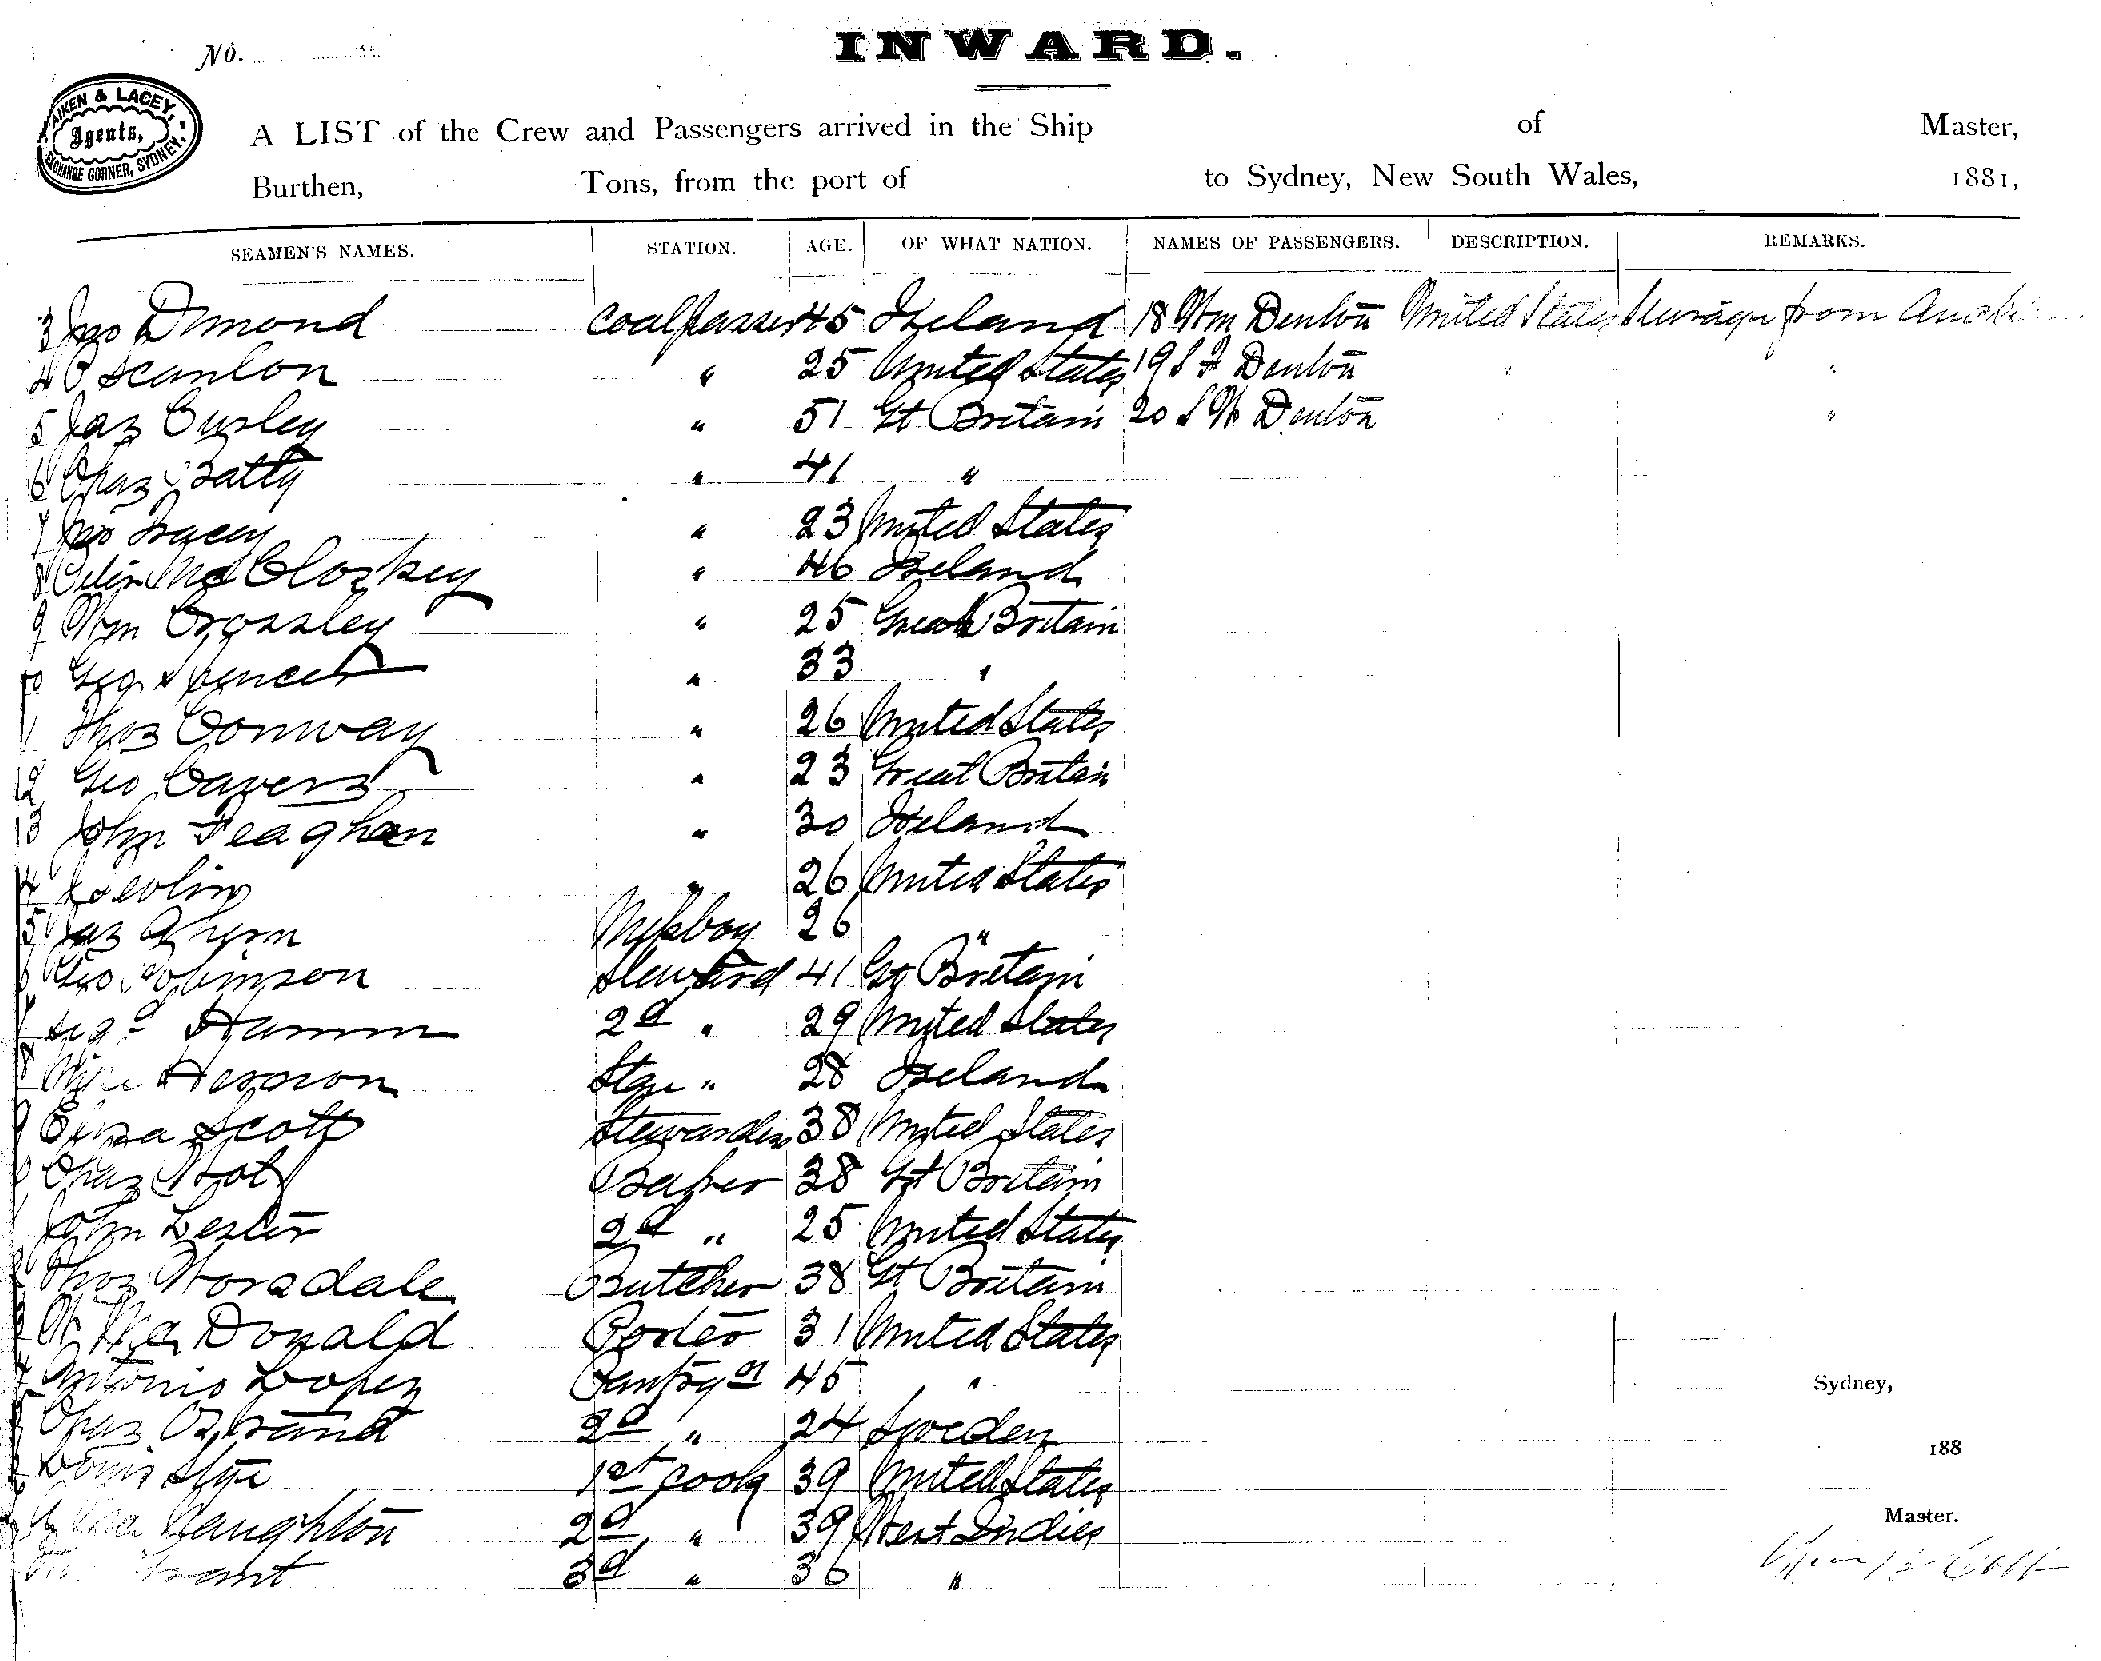 No.
INWARD.
AIKEN & LACEY,
Agents,
EXCHANGE CORNER, SYDNEY.
A LIST of the Crew and Passengers arrived in the Ship of Master,
Burthen, Tons, from the port of to Sydney, New South Wales, 1881,
SEAMEN'S NAMES. STATION. AGE. OF WHAT NATION. NAMES OF PASSENGERS. DESCRIPTION. REMARKS.
3 Jno Dimond coalpasser 45 Ireland 18 Wm Denton United States Steerage from
4 P Scanlon " 25 United States 19 S F Denton " "
5 Jas Curley " 51 Gt Britain 20 S W Denton " "
6 Chas Batty " 41 "
7 Jno Tracey " 23 United States
8 Peter McCloskey " 46 Ireland
9 Wm Crossley " 25 Great Britain
10 Geo Spencer " 33 "
11 Thos Conway " 26 United States
12 Geo Cavers " 23 Great Britain
13 John Feaghan " 30 Ireland
4 J Devlin " 26 United States
5 Jas Glynn Messboy 26 "
6 Geo Johnson Steward 41 Gt Britain
7 Hamm 2d " 29 United States
8 Herron Stge " 28 Ireland
9 Eliza Scott Stewardess 38 United States
0 Chas Bolt Baker 38 Gt Britain
1 John Lester 2d " 25 United States
2 Thos Worsdale Butcher 38 Gt Britain
3 W McDonald Porter 31 United States
4 Antonio Lopez Pantryn 45 "
5 Chas Ostrand 2d " 24 Sweden
6 Louis 1st Cook 39 United States
2d " 39 West Indies
Grant 3d " 36 "
Sydney,
188
Master.